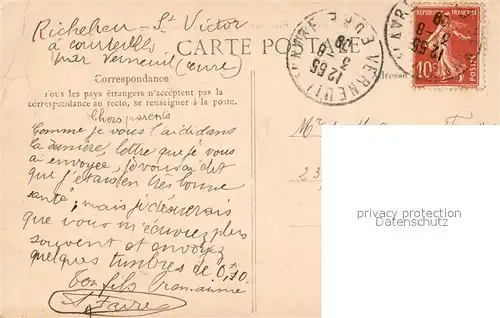 Richebeu - St Victor
à courteille
par Verneuil (eure)
CARTE POSTALE
Correspondance
Tous les pays étrangers n'acceptent pas la
correspondance au recto, se renseigner à la poste.
Adresse
VERNEUIL EURE
12 55
10c
POSTES
Mr
23
Chers parents
Comme je vous l'ai dit dans
la dernière lettre que je vous
ai envoyée, je vous ai dit
que j'étais en très bonne
santé, mais je désirerais
que vous m'écuvriez plus
souvent et envoyez
quelques timbres de 0,10
ton fils
St Favre
privacy protection
Datenschutz